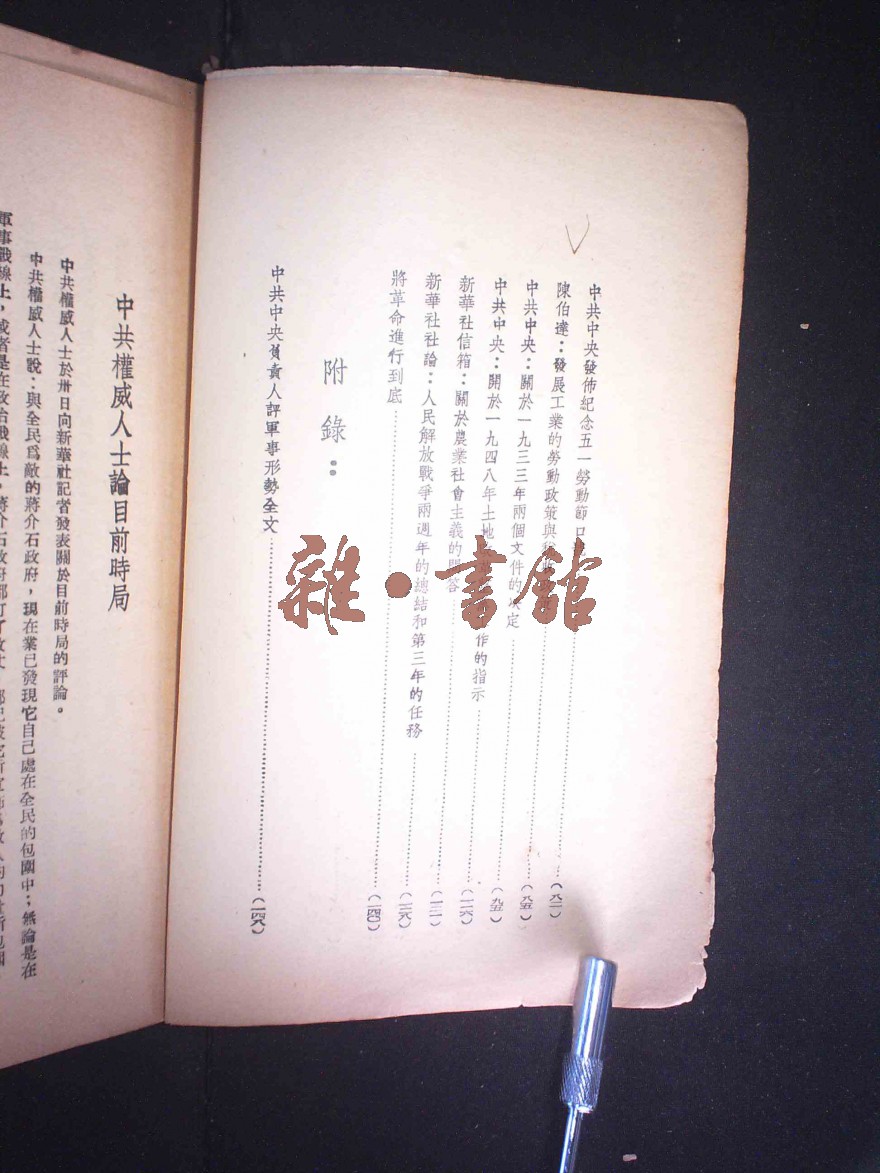 中共中央發佈紀念五一勞動節口
陳伯達：發展工業的勞動政策與稅
中共中央：關於一九三三年兩個文件的決定
中共中央：關於一九四八年土地 作的指示
新華社信箱：關於農業社會主義的問答
新華社社論：人民解放戰爭兩週年的總結和第三年的任務
將革命進行到底
附錄：
中共中央負責人評軍事形勢全文
雜·書館
中共權威人士論目前時局
中共權威人士於卅日向新華社記者發表關於目前時局的評論。
中共權威人士說：與全民爲敵的蔣介石政府，現在業已發現它自己處在全民的包圍中；無論是在
軍事戰線上，或者是在政治戰線上，蔣介石政府都打了敗仗